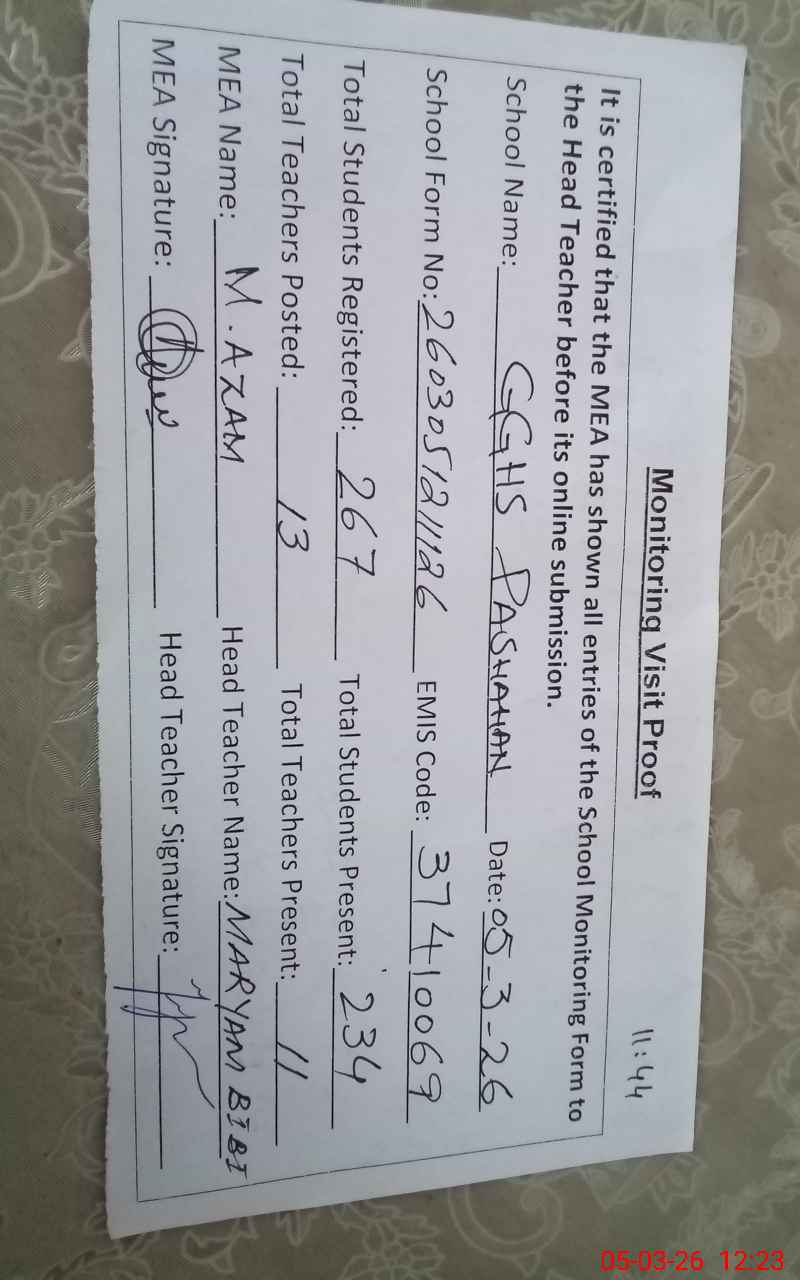 Monitoring Visit Proof
11:44
It is certified that the MEA has shown all entries of the School Monitoring Form to
the Head Teacher before its online submission.
School Name: GGHS PASHAHAN Date: 05-3-26
School Form No: 260305121126 EMIS Code: 37410069
Total Students Registered: 267 Total Students Present: 234
Total Teachers Posted: 13 Total Teachers Present: 11
MEA Name: M. AZAM Head Teacher Name: MARYAM BIBI
MEA Signature: Head Teacher Signature:
05-03-26 12:23